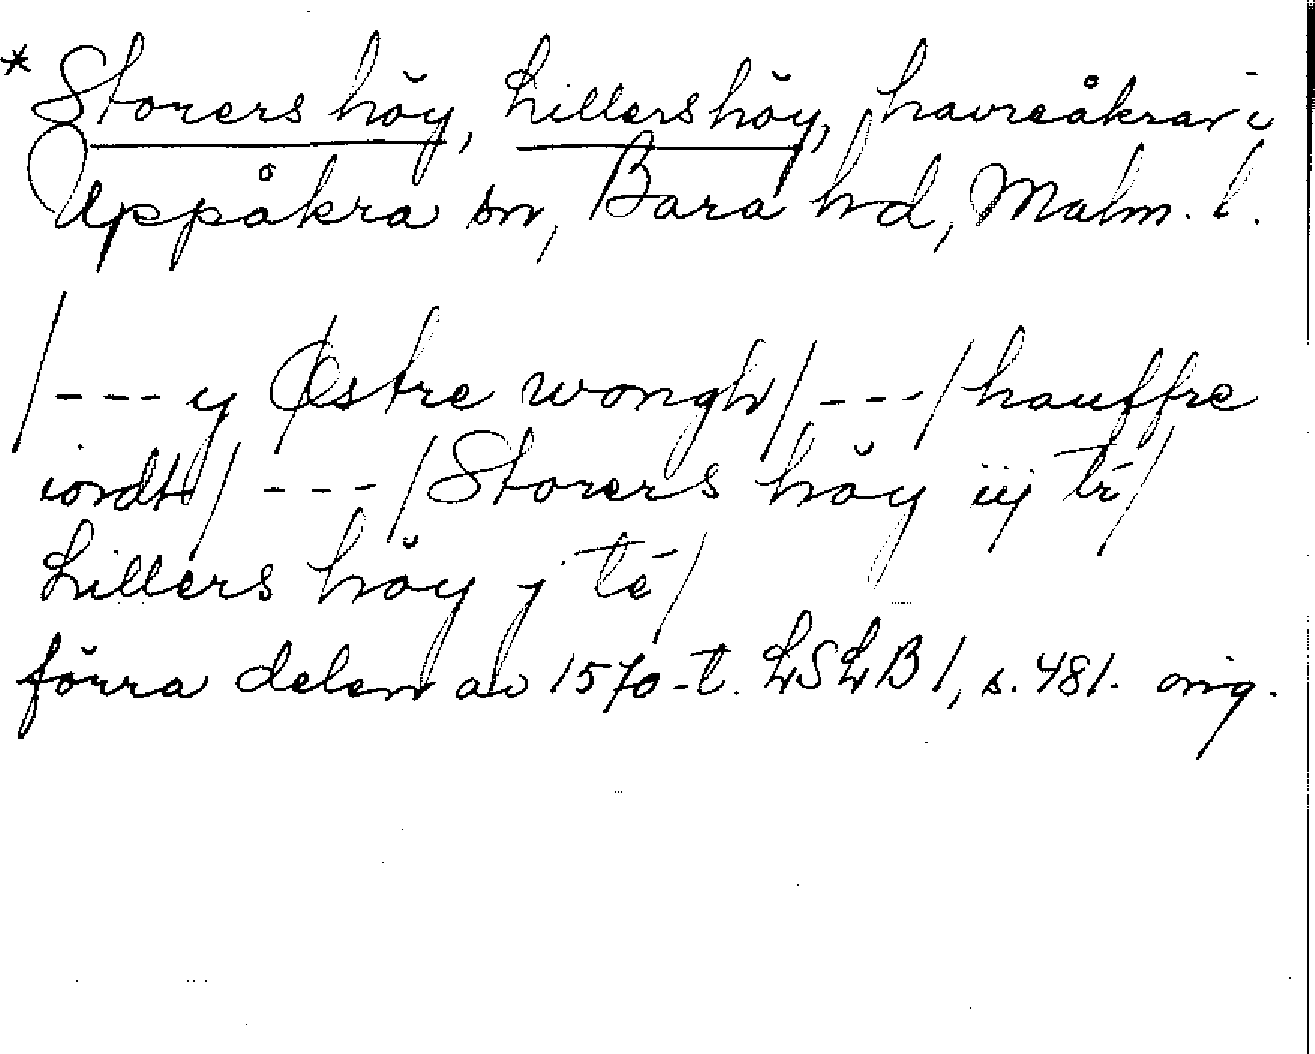 * Storers höy, Lillers höy, havreåkrar i
Uppåkra sn, Bara hd, Malm. l.
/---y Østre wongh/---/hauffre
iordt/---/Storers höy iij té/
Lillers höy j té/
förra delen av 1570-t. LSLB 1, s. 481. orig.